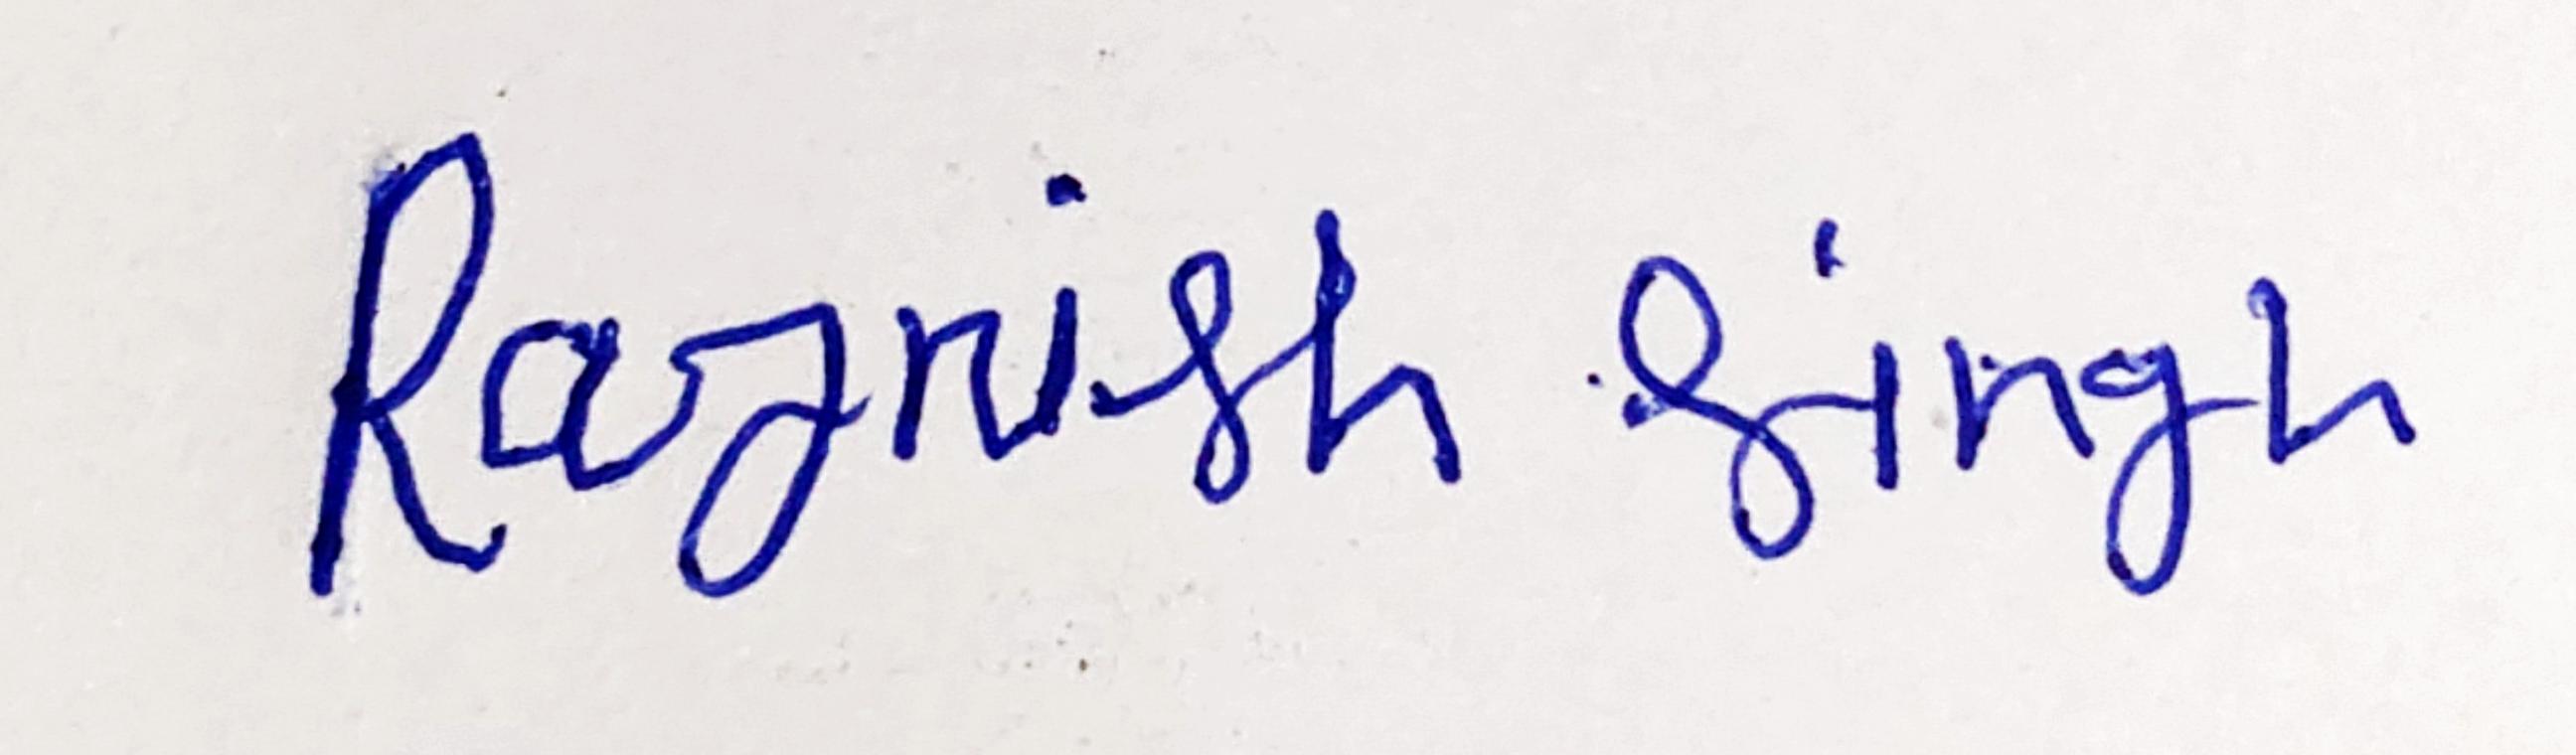 Rajnish Singh